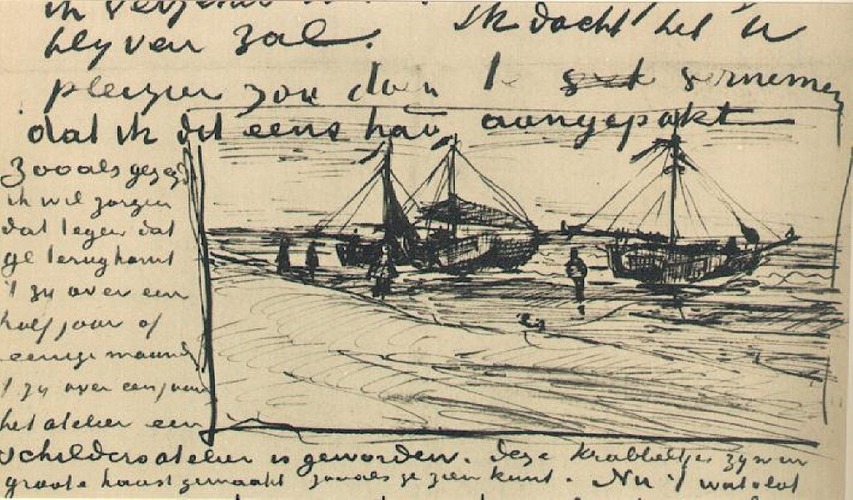 ik
blyven zal. Ik dacht het U
plezier zou doen vernemen
dat ik dit eens had aangepakt
Zooals gezegd
ik wil zorgen
dat tegen dat
ge terugkomt
't zy over een
half jaar of
eenige maand
't zy over een jaar
het atelier een
schildersatelier is geworden. Deze krabbeltjes zyn in
groote haast gemaakt zooals ge zien kunt. Nu 't wat